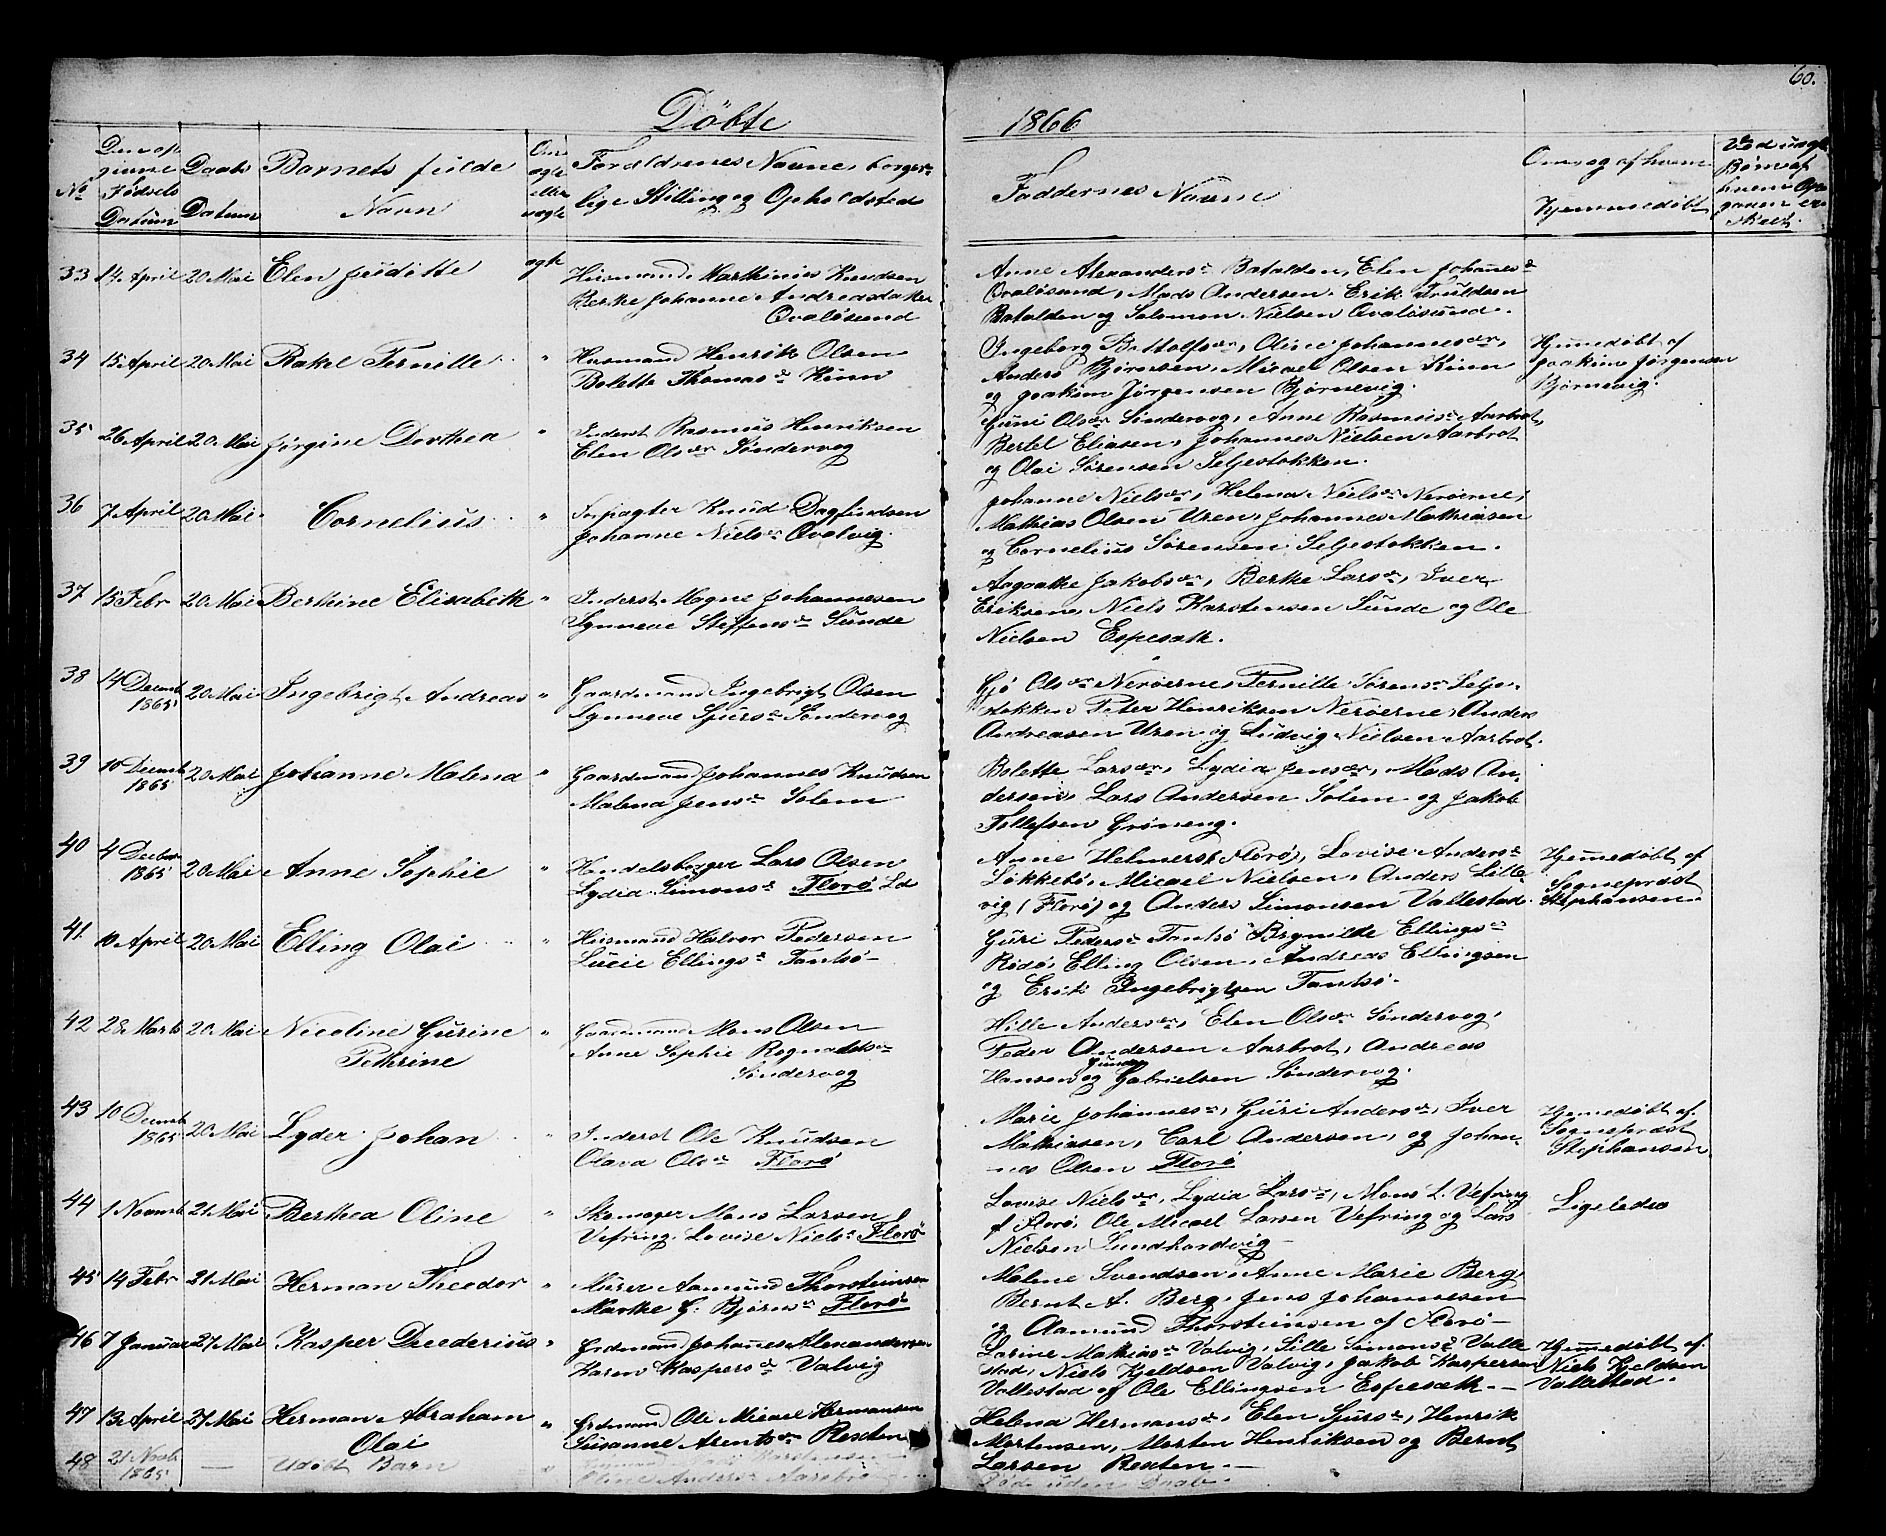 60.
Döbte
1866
No
Fødsels
Datum
Daabs
Datum
Barnets fulde
Navn
Om
ægte
eller
uægte
Forældrenes Navne, borger-
lige Stilling og Opholdsted
Faddernes Navne
Om og af hvem
Hjemmedøbt
33 14 April 20 Mai Elen Juditte ægte
Huusmand Marthinus Knudsen
Berthe Johanne Andreasdatter
Qvalösund
Anne Alexandersd Batalden, Elen Johannesd
Qvalösund, Mads Andersen, Erik Truldsen
Batalden og Solomon Nielsen Qvalösund.
34 15 April 20 Mai Rakel Pernille "
Husmand Henrik Olsen
Bolette Thomasd Kinn
Ingeborg Bottolfsdr, Oline Johannesdr,
Anders Björnsen, Micael Olsen Kinn
og Joakim Jørgensen Bjørnevig.
Hjemedöbt af
Joakim Jørgensen
Bjørnevig.
35 26 April 20 Mai Jørgine Dorthea "
Inderst Rasmus Henriksen
Elen Olsdr Søndervog
Guri Olsdr Søndervog, Anne Rasmusd Aarbrot,
Bertel Eliasen, Johannes Nielsen Aarbrot
og Olai Sørensen Seljestokken.
36 7 April 20 Mai Cornelius "
Forpagter Knud Dagfindsen
Johanne Nielsdr Qvalvig.
Johanne Nielsdr, Helena Nielsd Nerøerne,
Mathias Olsen Uren, Johannes Mathiasen
og Cornelius Sørensen Seljestokken.
37 15 Febr 20 Mai Berthine Elisabeth "
Inderst Magne Johannesen
Synneve Steffensd Sunde
Aagaathe Jakobsdr, Berthe Larsd, Iver
Eriksen, Niels Karstensen Sunde og Ole
Nielsen Espesæth.
38 14 Decemb 1865 20 Mai Ingebrigt Andreas "
Gaardmand Ingebrigt Olsen
Synneve Sjursd Søndervog
Gjö Olsdr Nerøerne, Pernille Sørensd Selje-
stokken Peter Henriksen Nerøerne, Anders
Andreasen Uren og Ludvig Nielsen Aarbrot.
39 10 Decemb 1865 20 Mai Johanne Malena "
Gaardmand Johannes Knudsen
Malena Jensd Solem
Bolette Larsdr, Lydia Jensdr, Mads An-
dersen, Lars Andersen Solem og Jakob
Tollefsen Grøneng.
40 4 Decbr 1865 20 Mai Anne Sophie "
Handelsborger Lars Olsen
Lydia Simonsd Florø Ld
Anne Helmers (Florø), Lovise Andersd
Løkkebö, Micael Nielsen, Anders Lille-
vig (Florø) og Anders Simonsen Vallestad.
Hjemedöbt af
Sognepræst
Stephansen
41 10 April 20 Mai Elling Olai "
Husmand Halvor Pedersen
Lucie Ellingsd Tansö
Guri Pedersd Tansö Brynilte Ellingsd
Rödö, Elling Olsen, Andreas Ellingsen
og Erik Ingebrigtsen Tansö.
42 28 Marts 20 Mai Nicoline Gurine
Pethrine "
Gaardmand Mons Olsen
Anne Sophie Rognaldsdr
Søndervog
Hille Andersdr, Elen Olsdr Søndervog,
Peder Andersen Aarbrot, Andreas
Hansen og Gabrielsen Søndervog.
43 10 Decemb 1865 20 Mai Lyder Johan "
Inderst Ole Knudsen
Olava Olsd Florø
Marie Johannesd, Guri Andersd, Iver
Mathiasen, Carl Andersen, og Johan-
nes Olsen Florø
Hjemedöbt af
Sognepræst
Stephansen
44 1 Novemb 21 Mai Berthea Oline "
Skomager Mons Larsen
Vefring, Lovise Nielsd Florø
Lovise Nielsdr, Lydia Larsd, Mons L. Vefring
af Florø, Ole Micael Larsen Vefring og Lars
Nielsen Sundhordvig
Ligeledes
45 14 Febr 21 Mai Herman Theodor "
Murer Aamund Thorsteinsen
Marthe G. Bjørnsd Florø
Malene Svendsen, Anne Marie Berg,
Bernt A. Berg, Jens Johannesen
og Aamund Thorsteinsen af Florø
46 7 Januar 27 Mai Kasper Deederius "
Grdmand Johanes Alexandersen
Karen Kaspersd Valvig
Larine Mathiasd Valvig, Sille Simonsd Valle
stad, Niels Kjeldsen Valvig, Jakob Kaspersen
Vallestad og Ole Ellingsen Espesæth.
Hjemedöbt af
Niels Kjeldsen
Vallestad.
47 13 April 27 Mai Herman Abraham
Olai "
Grdmand Ole Micael Hermansen
Susanne Arentsdr Resten
Helena Hermansd, Elen Sjursd, Henrik
Mortensen, Morten Henriksen og Bernt
Larsen Resten.
48 21 Novb 1865 — Udöbt Barn "
Oline Andersd
Döde uden Daab